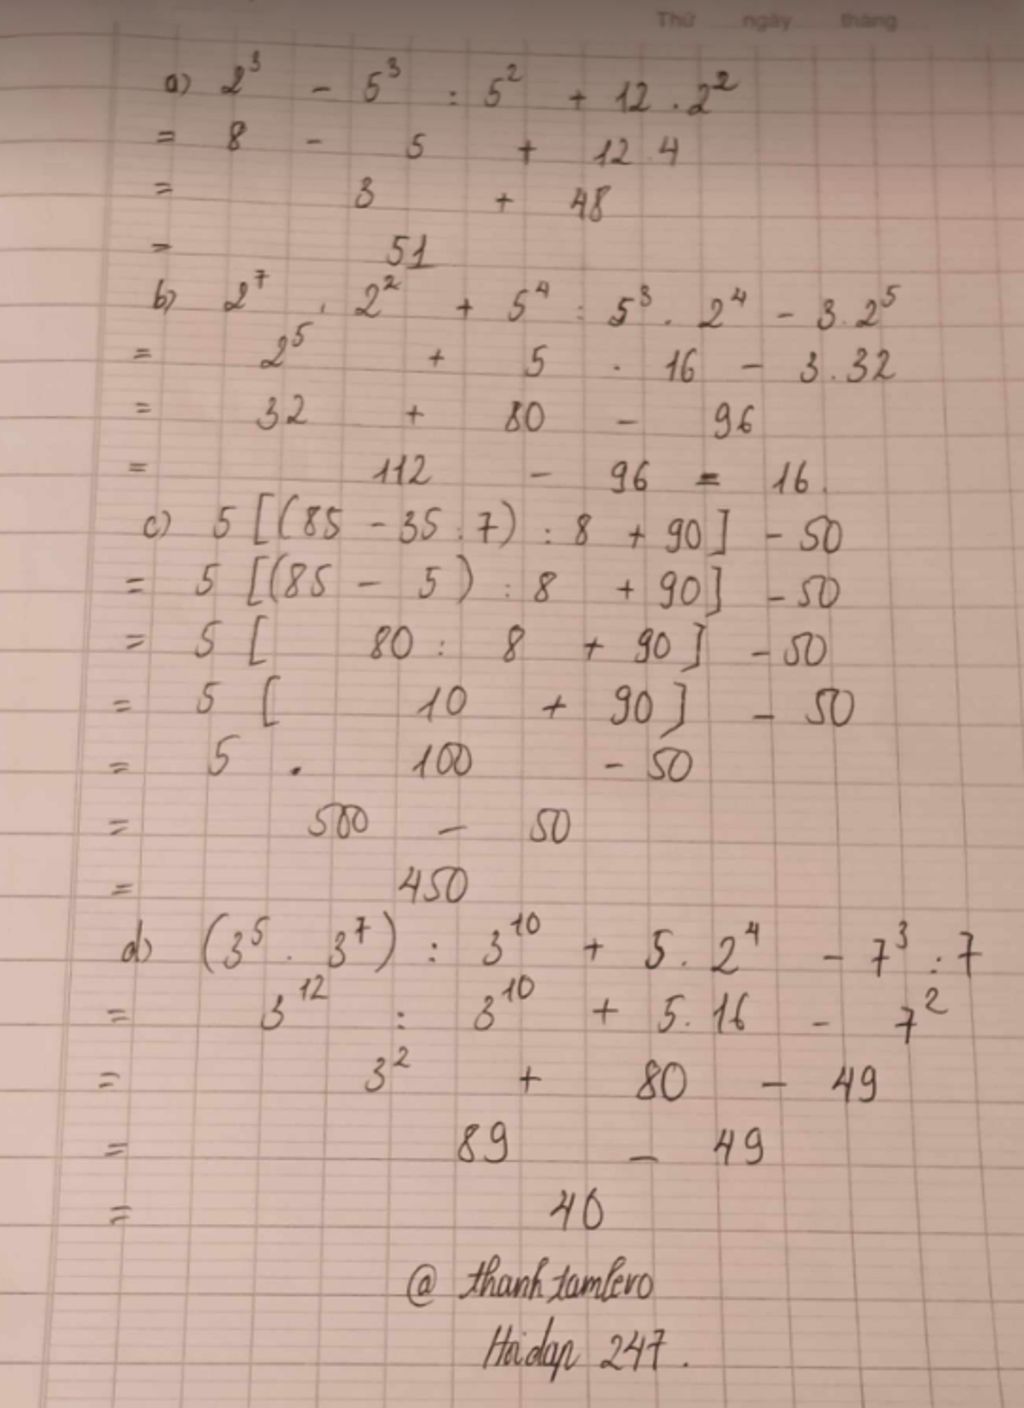 Thứ ngày tháng
a) 2³ - 5³ : 5² + 12 . 2²
= 8 - 5 + 12 . 4
= 3 + 48
= 51
b) 2⁷ . 2² + 5⁴ : 5³ . 2⁴ - 3 . 2⁵
= 2⁵ + 5 . 16 - 3 . 32
= 32 + 80 - 96
= 112 - 96 = 16.
c) 5 [(85 - 35 : 7) : 8 + 90] - 50
= 5 [(85 - 5) : 8 + 90] - 50
= 5 [ 80 : 8 + 90] - 50
= 5 [ 10 + 90] - 50
= 5 . 100 - 50
= 500 - 50
= 450
d) (3⁵ . 3⁷) : 3¹⁰ + 5 . 2⁴ - 7³ : 7
= 3¹² : 3¹⁰ + 5 . 16 - 7²
= 3² + 80 - 49
= 89 - 49
= 40
@ thanhtamlero
Hoidap 247.